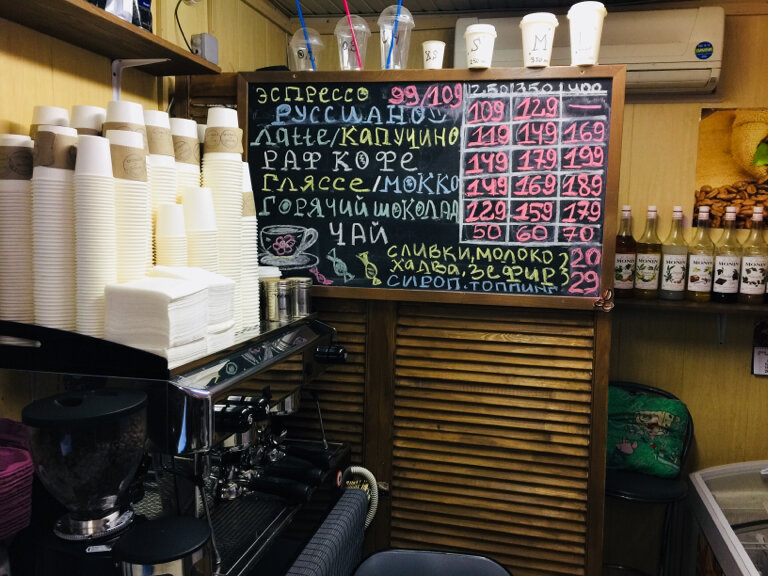 S M L
ЭСПРЕССО 99/109 250 350 400
РУССИАНО 109 129 —
Латte/КАПУЧИНО 119 149 169
РАФ КОФЕ 149 179 199
ГЛЯССЕ/МОККО 149 169 189
ГОРЯЧИЙ ШОКОЛАД 129 159 179
ЧАЙ 50 60 70
СЛИВКИ, МОЛОКО
ХАЛВА, ЗЕФИР } 20
СИРОП. ТОППИНГ 29
MONIN MONIN MONIN MONIN MONIN MONIN